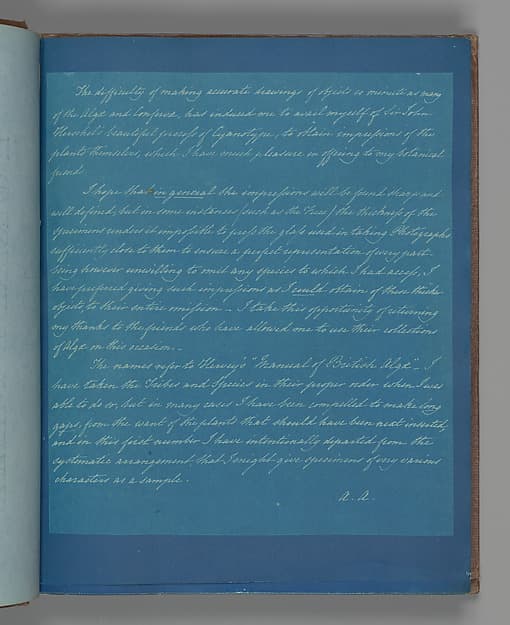 The difficulty of making accurate drawings of objects so minute as many
of the Algæ and Confervæ, has induced me to avail myself of Sir John
Herschel's beautiful process of Cyanotype, to obtain impressions of the
plants themselves, which I have much pleasure in offering to my botanical
friends.
I hope that in general the impressions will be found sharp and
well defined, but in some instances (such as the Fuci) the thickness of the
specimens renders it impossible to press the glass used in taking Photographs
sufficiently close to them to ensure a perfect representation of every part.
Being however unwilling to omit any species to which I had access, I
have preferred giving such impressions as I could obtain of these thicker
objects, to their entire omission. I take this opportunity of returning
my thanks to the friends who have allowed me to use their collections
of Algæ on this occasion.
The names refer to Harvey's "Manual of British Algæ" - I
have taken the Tribes and Species in their proper order when I was
able to do so, but in many cases I have been compelled to make long
gaps, from the want of the plants that should have been next inserted,
and in this first number I have intentionally departed from the
systematic arrangement, that I might give specimens of very various
characters as a sample.
A. A.